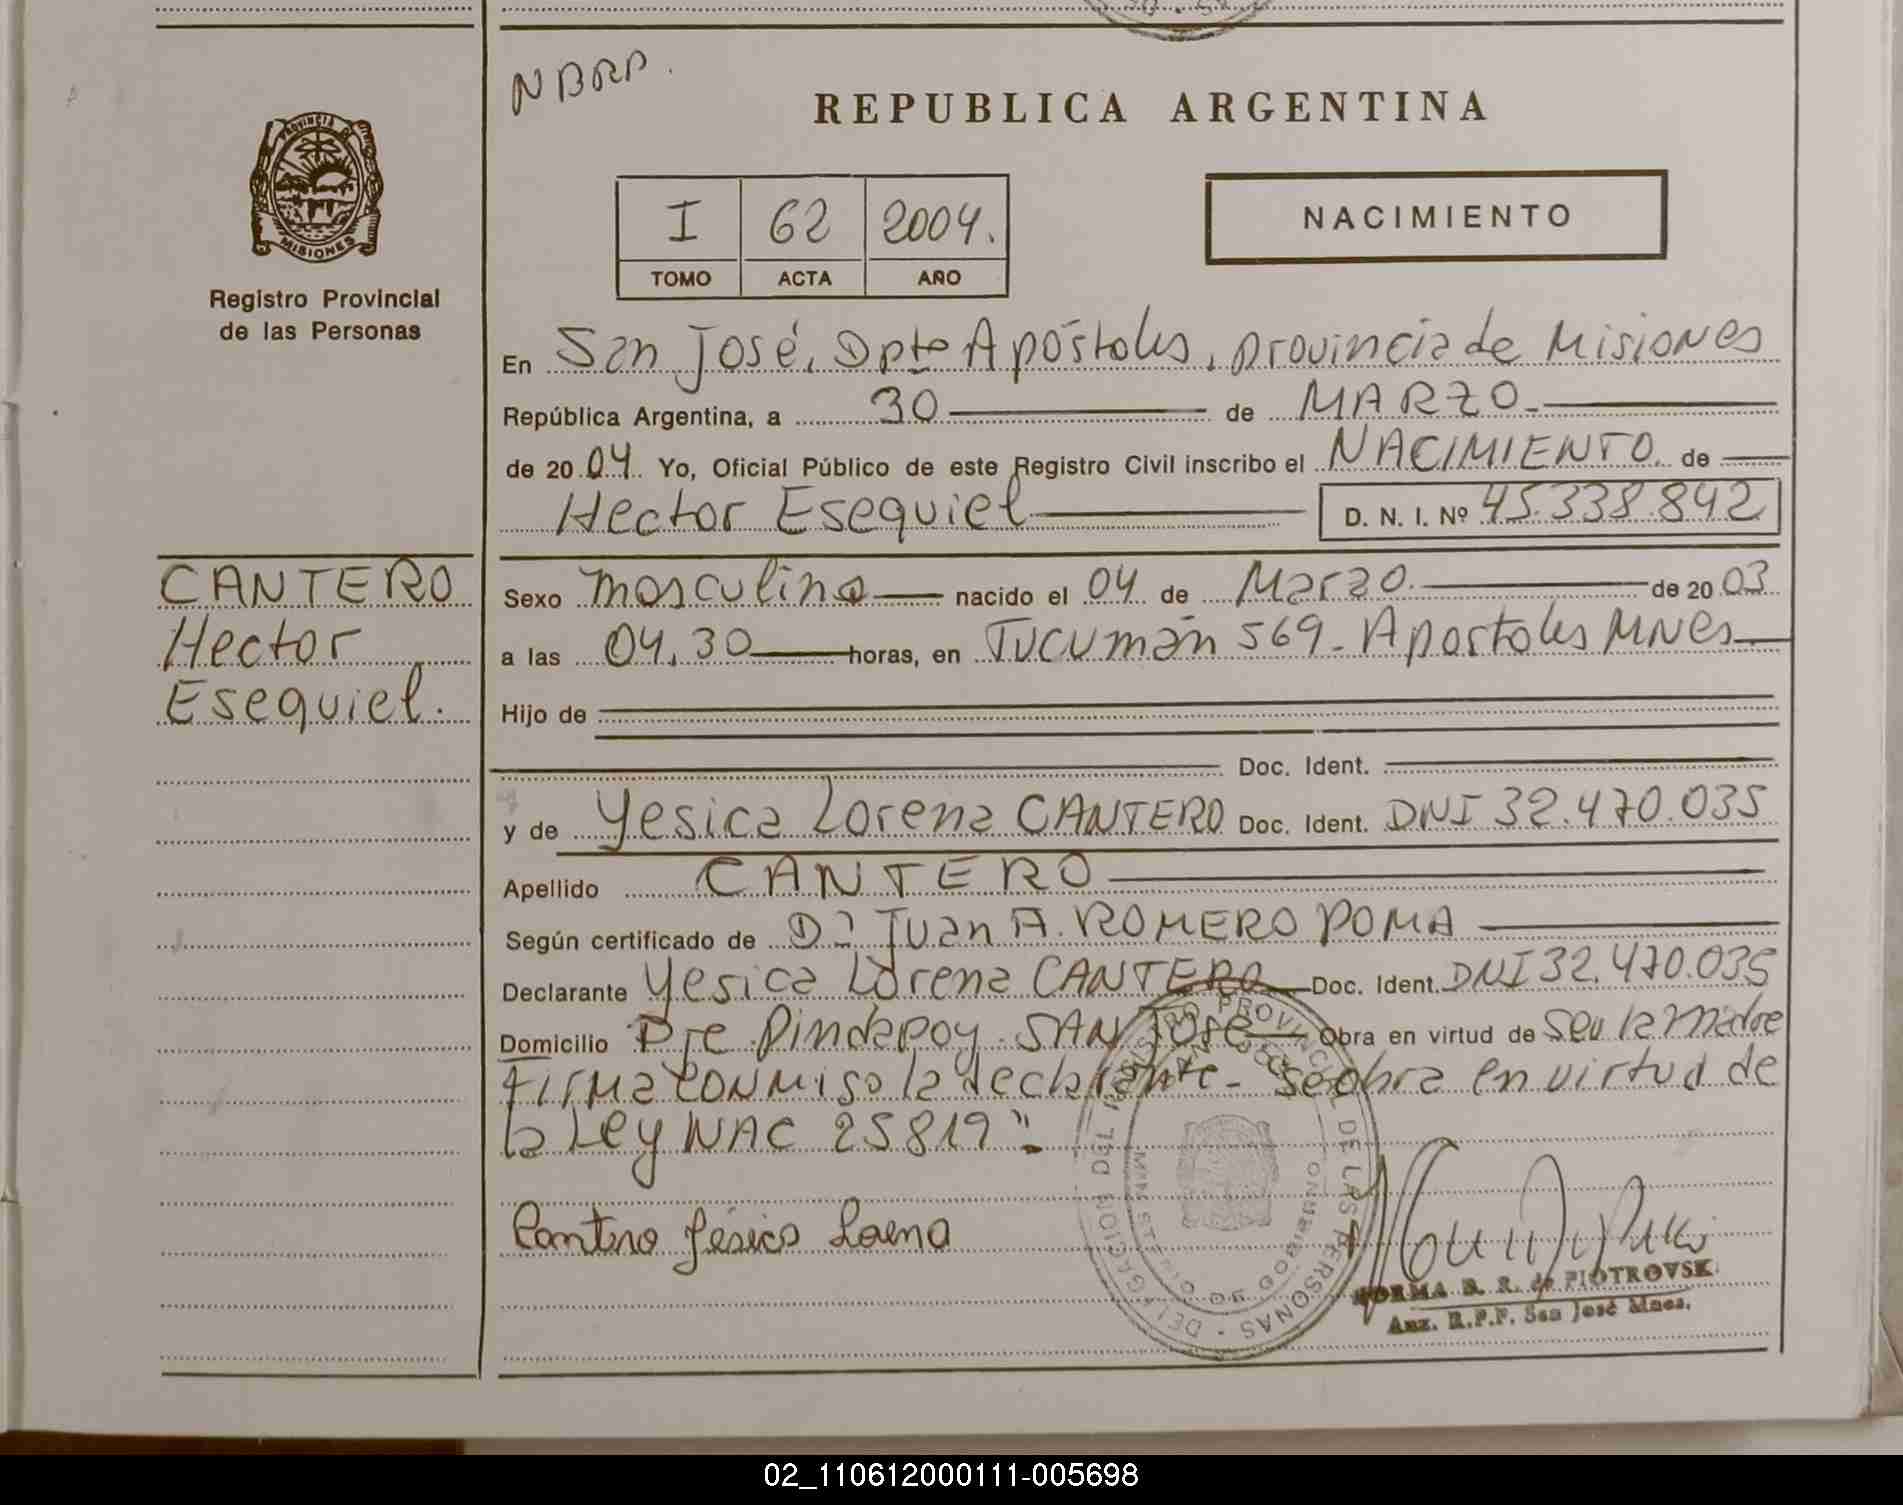 NBRP.
REPUBLICA ARGENTINA
PROVINCIA DE
MISIONES
Registro Provincial
de las Personas
I 62 2004.
TOMO ACTA AÑO
NACIMIENTO
En San José, Dpto Apóstoles, provincia de Misiones
República Argentina, a 30 de MARZO.
de 2004 Yo, Oficial Público de este Registro Civil inscribo el NACIMIENTO de
Hector Esequiel D. N. I. Nº 45.338.842
CANTERO
Hector
Esequiel.
Sexo masculino nacido el 04 de Marzo. de 2003
a las 04,30 horas, en Tucumán 569. Apostoles MNes
Hijo de
Doc. Ident.
y de Yesica Lorena CANTERO Doc. Ident. DNI 32.470.035
Apellido CANTERO
Según certificado de Dr Juan A. ROMERO POMA
Declarante Yesica Lorena CANTERO Doc. Ident. DNI 32.470.035
Domicilio Pje Pindapoy. SAN José Obra en virtud de Seu la madre
Firma conmiso la declarante. "Se obra en virtud de
la Ley NAC 25819".
Cantero Yésica Lorena
DELEGACION DEL REGISTRO PROVINCIAL DE LAS PERSONAS
MINISTERIO DE GOBIERNO
SAN JOSE
NORMA B. R. de PIOTROVSKI
Aux. R.P.P. San José Mnes.
02_110612000111-005698